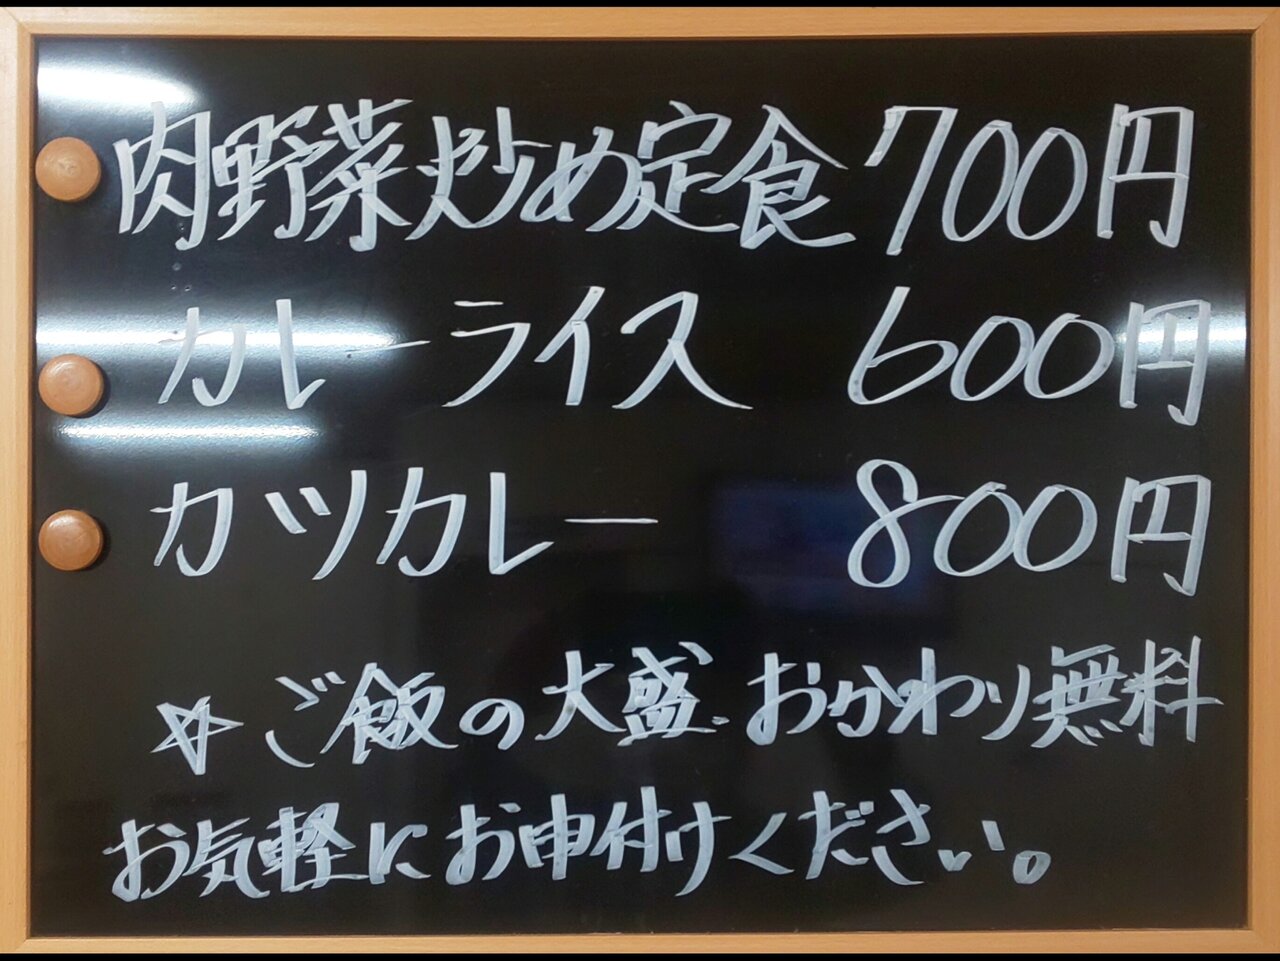 肉野菜炒め定食 700円
カレーライス 600円
カツカレー 800円
☆ご飯の大盛.おかわり無料
お気軽にお申付けください。